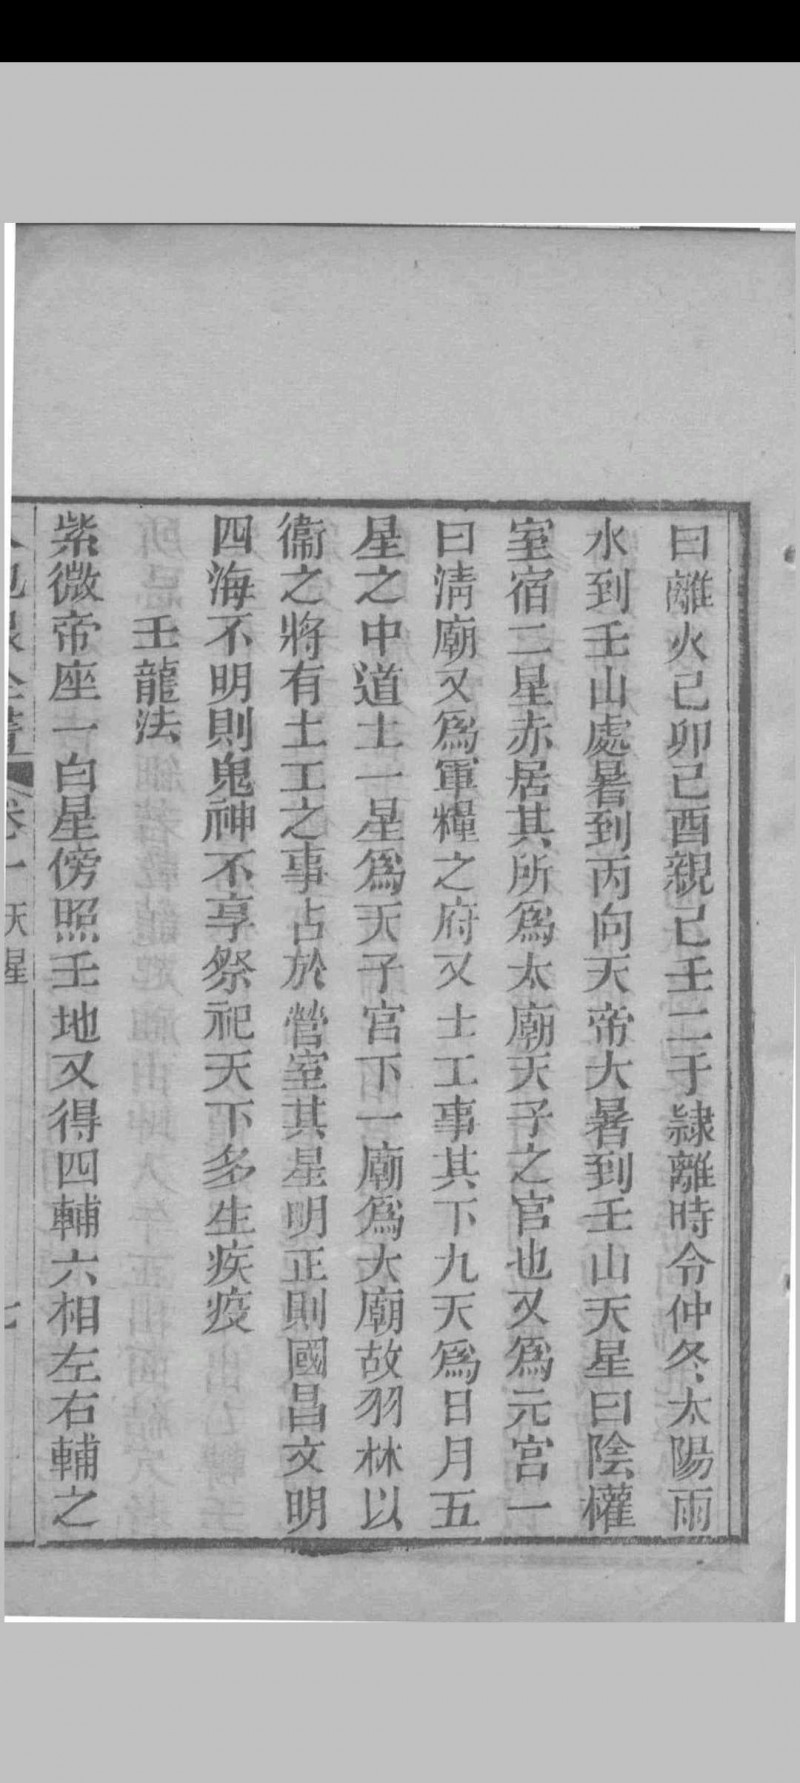 曰離火己卯己酉親己壬二于隷離時令仲冬太陽雨
水到壬山處暑到丙向天帝大暑到壬山天星曰陰權
室宿二星赤居其所爲太廟天子之官也又爲元宮一
曰淸廟又爲軍糧之府又土工事其下九天爲日月五
星之中道土一星爲天子宮下一廟爲大廟故羽林以
衞之將有土工之事占於營室其星明正則國昌文明
四海不明則鬼神不享祭祀天下多生疾疫
壬龍法
紫微帝座一白星傍照壬地又得四輔六相左右輔之
卷一 天星 七